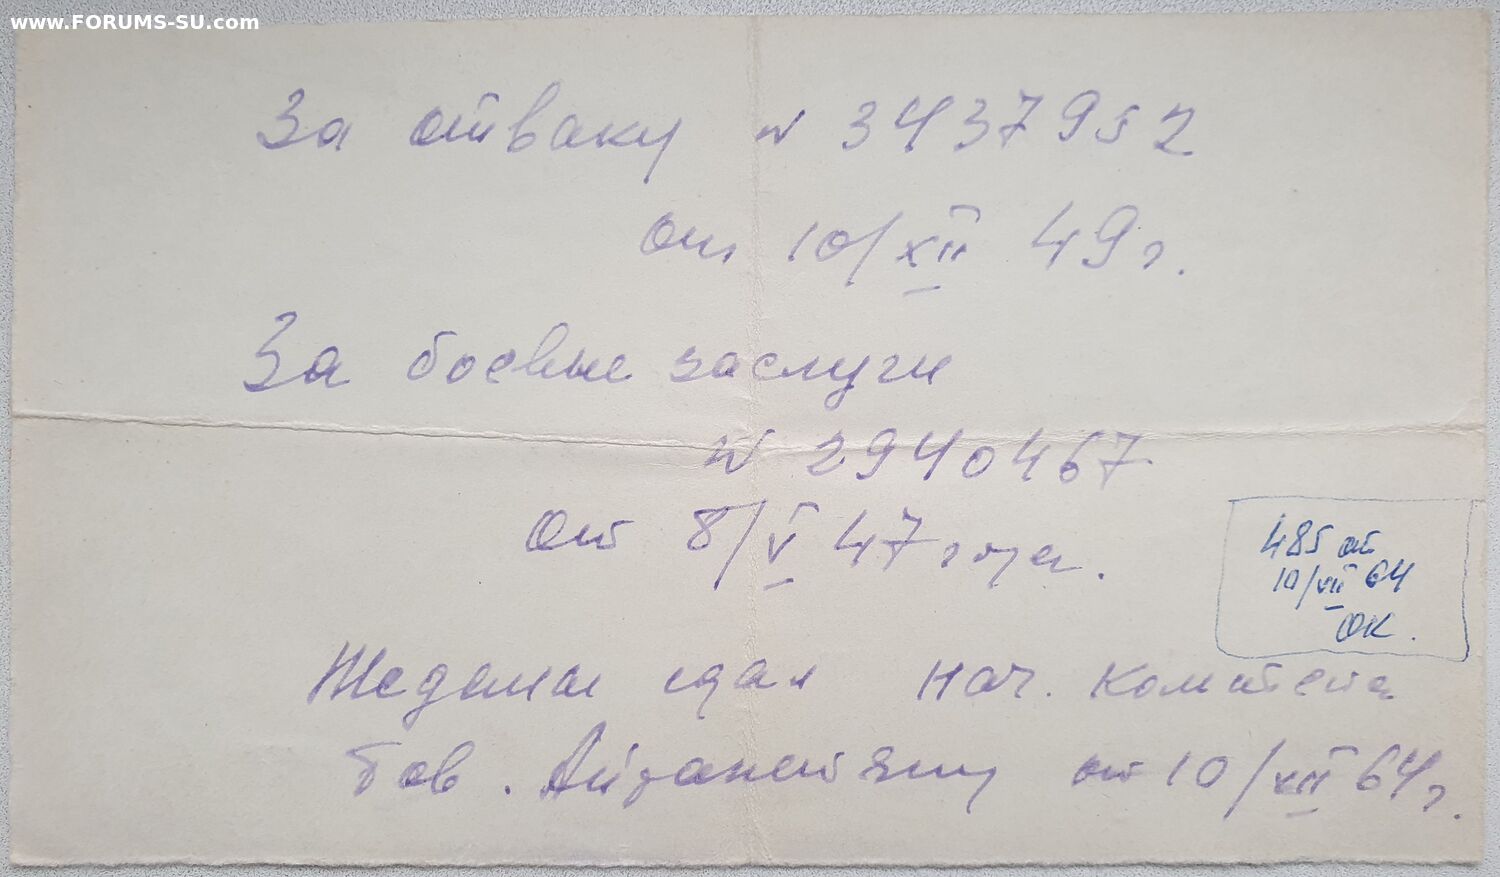 www.FORUMS-SU.com
За отваку № 3437952
От 10/XII 49 г.
За боевые заслуги
№ 2940467
От 8/V 47 года.
485 от
10/XII 64
ОК.
Медали сдал нач. Комитета
Тов. от 10/XII 64 г.